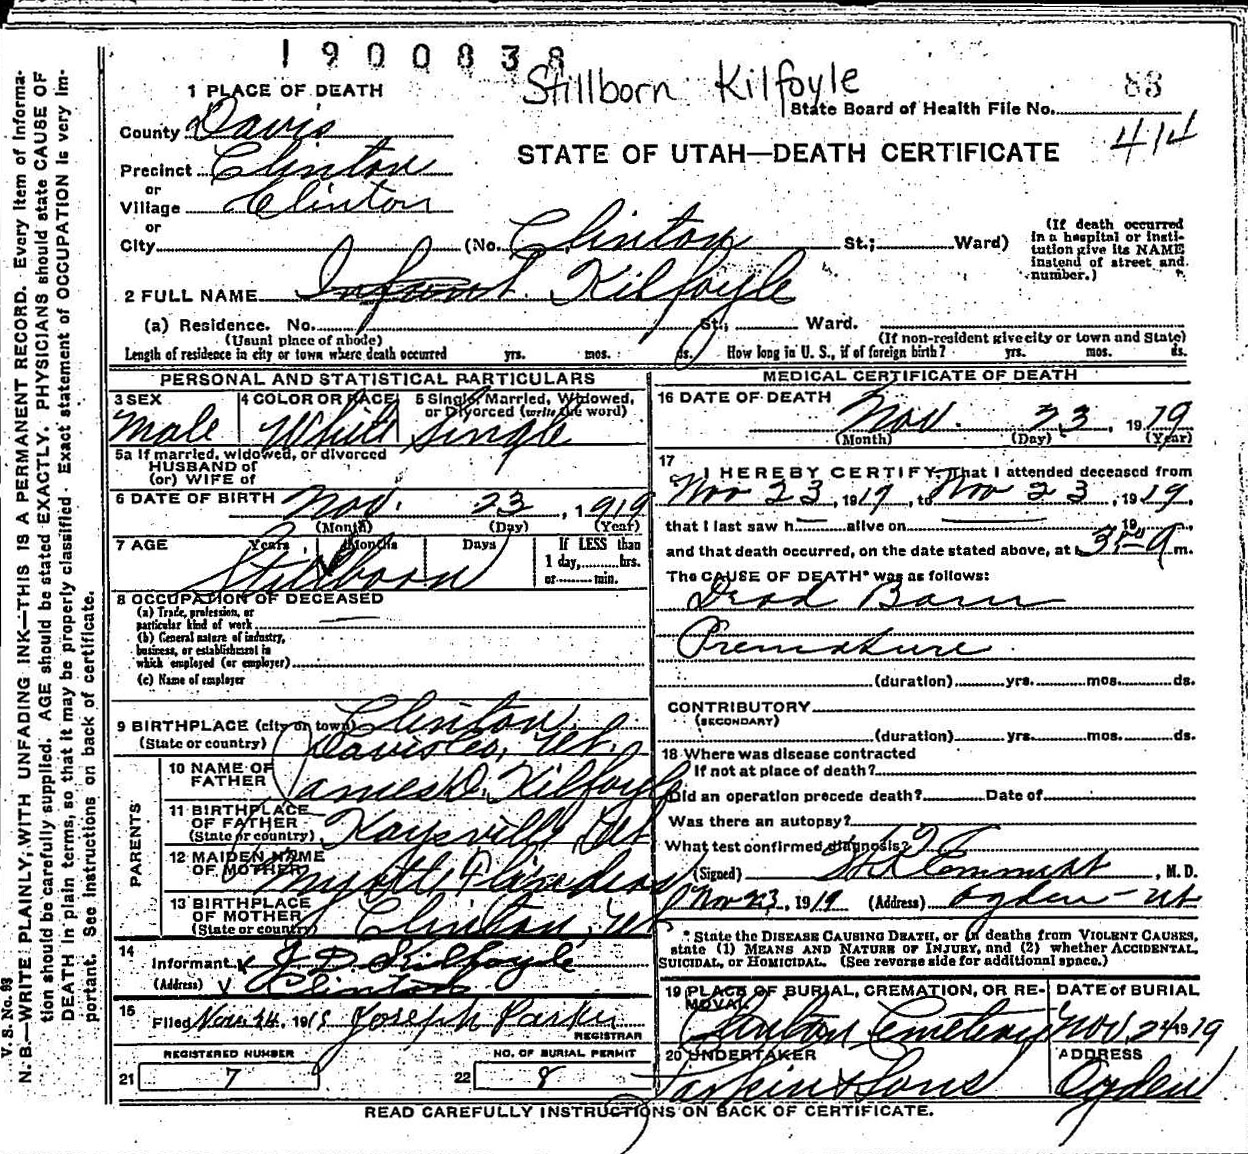 1900838
Stillborn Kilfoyle
83
1 PLACE OF DEATH
State Board of Health File No.
414
County Davis
STATE OF UTAH—DEATH CERTIFICATE
Precinct Clinton
or
Village Clinton
or
City (No. Clinton St.; Ward)
(If death occurred in a hospital or insti-
tution give its NAME
instead of street and
number.)
2 FULL NAME Infant Kilfoyle
(a) Residence. No. St., Ward.
(Usual place of abode) (If non-resident give city or town and State)
Length of residence in city or town where death occurred yrs. mos. ds. How long in U. S., if of foreign birth? yrs. mos. ds.
PERSONAL AND STATISTICAL PARTICULARS
3 SEX 4 COLOR OR RACE 5 Single, Married, Widowed,
or Divorced (write the word)
Male White Single
5a If married, widowed, or divorced
HUSBAND of
(or) WIFE of
6 DATE OF BIRTH Nov. 23, 1919
(Month) (Day) (Year)
7 AGE Years Months Days If LESS than
1 day, hrs.
or min.
Stillborn
8 OCCUPATION OF DECEASED
(a) Trade, profession, or
particular kind of work
(b) General nature of industry,
business, or establishment in
which employed (or employer)
(c) Name of employer
9 BIRTHPLACE (city or town) Clinton,
(State or country) Davis Co, Ut.
PARENTS
10 NAME OF
FATHER James D. Kilfoyle
11 BIRTHPLACE
OF FATHER
(State or country) Kaysville Ut
12 MAIDEN NAME
OF MOTHER
13 BIRTHPLACE
OF MOTHER
(State or country) Clinton, Ut
14
Informant J D Kilfoyle
(Address) Clinton
15
Filed Nov. 24, 191 Joseph Parker
REGISTRAR
REGISTERED NUMBER NO. OF BURIAL PERMIT
21 7 22 8
MEDICAL CERTIFICATE OF DEATH
16 DATE OF DEATH
Nov. 23, 1919
(Month) (Day) (Year)
17
I HEREBY CERTIFY, That I attended deceased from
Nov 23, 1919, to Nov 23, 1919,
that I last saw h alive on 19 ,
and that death occurred, on the date stated above, at m.
The CAUSE OF DEATH* was as follows:
Dead Born
Premature
(duration) yrs. mos. ds.
CONTRIBUTORY
(SECONDARY)
(duration) yrs. mos. ds.
18 Where was disease contracted
If not at place of death?
Did an operation precede death? Date of
Was there an autopsy?
What test confirmed diagnosis?
(Signed) , M. D.
Nov 23, 1919 (Address) Ogden - Ut
* State the DISEASE CAUSING DEATH, or in deaths from VIOLENT CAUSES,
state (1) MEANS AND NATURE OF INJURY, and (2) whether ACCIDENTAL,
SUICIDAL, or HOMICIDAL. (See reverse side for additional space.)
19 PLACE OF BURIAL, CREMATION, OR RE-
MOVAL
DATE of BURIAL
Clinton Cemetery Nov. 24 1919
20 UNDERTAKER ADDRESS
Larkin & Sons Ogden
READ CAREFULLY INSTRUCTIONS ON BACK OF CERTIFICATE.
V. S. No. 93
N. B.—WRITE PLAINLY, WITH UNFADING INK—THIS IS A PERMANENT RECORD. Every item of informa-
tion should be carefully supplied. AGE should be stated EXACTLY. PHYSICIANS should state CAUSE OF
DEATH in plain terms, so that it may be properly classified. Exact statement of OCCUPATION is very im-
portant. See instructions on back of certificate.